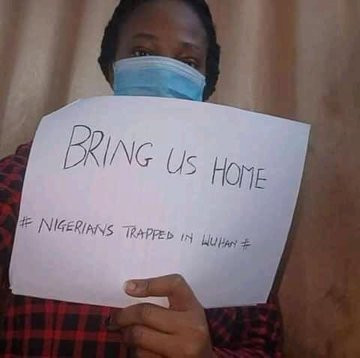 BRING US HOME
# NIGERIANS TRAPPED IN WUHAN #